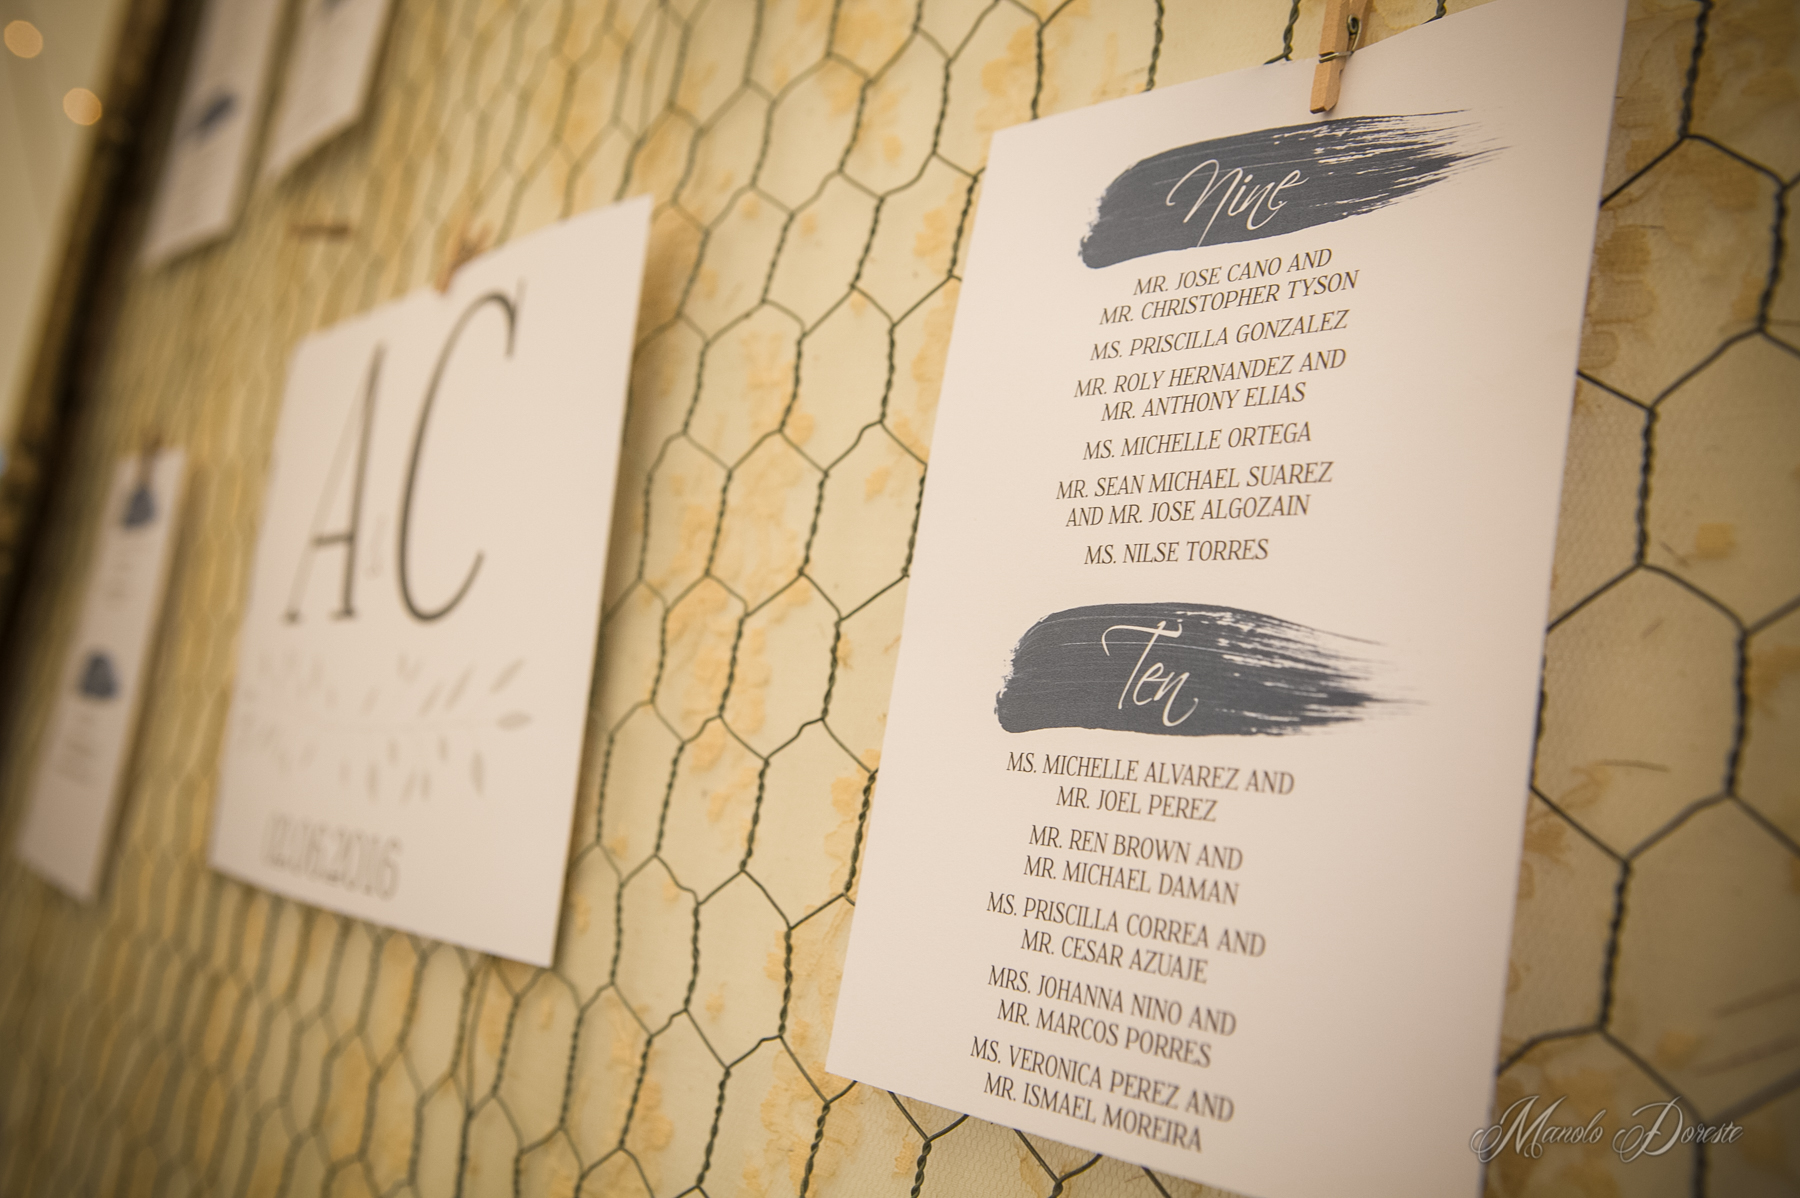 A C
Nine
MR. JOSE CANO AND
MR. CHRISTOPHER TYSON
MS. PRISCILLA GONZALEZ
MR. ROLY HERNANDEZ AND
MR. ANTHONY ELIAS
MS. MICHELLE ORTEGA
MR. SEAN MICHAEL SUAREZ
AND MR. JOSE ALGOZAIN
MS. NILSE TORRES
Ten
MS. MICHELLE ALVAREZ AND
MR. JOEL PEREZ
MR. REN BROWN AND
MR. MICHAEL DAMAN
MS. PRISCILLA CORREA AND
MR. CESAR AZUAJE
MRS. JOHANNA NINO AND
MR. MARCOS PORRES
MS. VERONICA PEREZ AND
MR. ISMAEL MOREIRA
Manolo Doreste